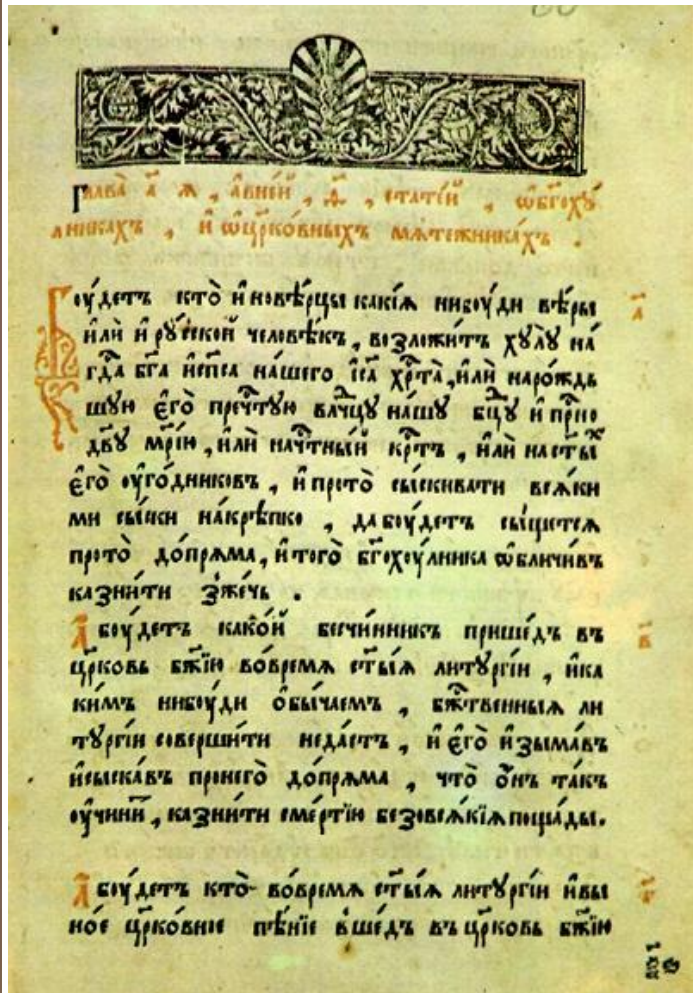 Глава̀ а҃ я , а҆вне́й , ѳ҃ , стате́й , ѡ҆бг҃оху́
лникахъ , и҆ ѡ҆цр҃ко́вныхъ мѧте́жникахъ .
Боу́детъ кто̀ и҆новѣ́рцы какі́ѧ нибоу́ди вѣ́ры
и҆лѝ и҆ рꙋ́ской человѣ́къ , возложи́тъ хꙋлꙋ̀ на́
гдⷭ҇а бг҃а и҆сп҃са на́шего і҆с҃а хрⷭ҇та̀ , и҆лѝ наро́ждь
шꙋю є҆го̀ пречⷭ҇тꙋю влⷣчцꙋ на́шꙋ бцⷣꙋ и҆ прⷭ҇но
дв҃ꙋ мр҃і́ю , и҆лѝ начⷭ҇тны́й крⷭ҇тъ , и҆лѝ наст҃ы́хъ
є҆го̀ оуго́дниковъ , и҆ прото̀ сы́скивати всѧ́ки
ми сы́ски на́крѣпко , да боу́детъ сы́щетсѧ
прото̀ до́прѧма , и҆ того̀ бг҃охоу́лника ѡ҆бличи́въ
казни́ти зже́чь .
А҆ боу́детъ како́й бесчи́нникъ прише́дъ въ
цр҃ковь бж҃їю во́времѧ ст҃ы́ѧ литꙋргі́и , и҆ка
ки́мъ нибоу́ди ѻ҆бы́чаемъ , бжⷭ҇твенныѧ ли
тꙋргі́и соверши́ти неда́стъ , и҆ є҆го̀ и҆зыма́въ
и҆сыска́въ пронего̀ до́прѧма , что̀ ѻ҆́нъ та́къ
оучини́тъ , казни́ти сме́ртїю безовсѧ́кїѧ поща́ды .
А҆ боу́детъ кто̀ во́времѧ ст҃ы́ѧ литꙋргі́и и҆вы
но́е цр҃ко́вное пѣ́нїе вше́дъ въ цр҃ковь бж҃їю
а҃
в҃
г҃